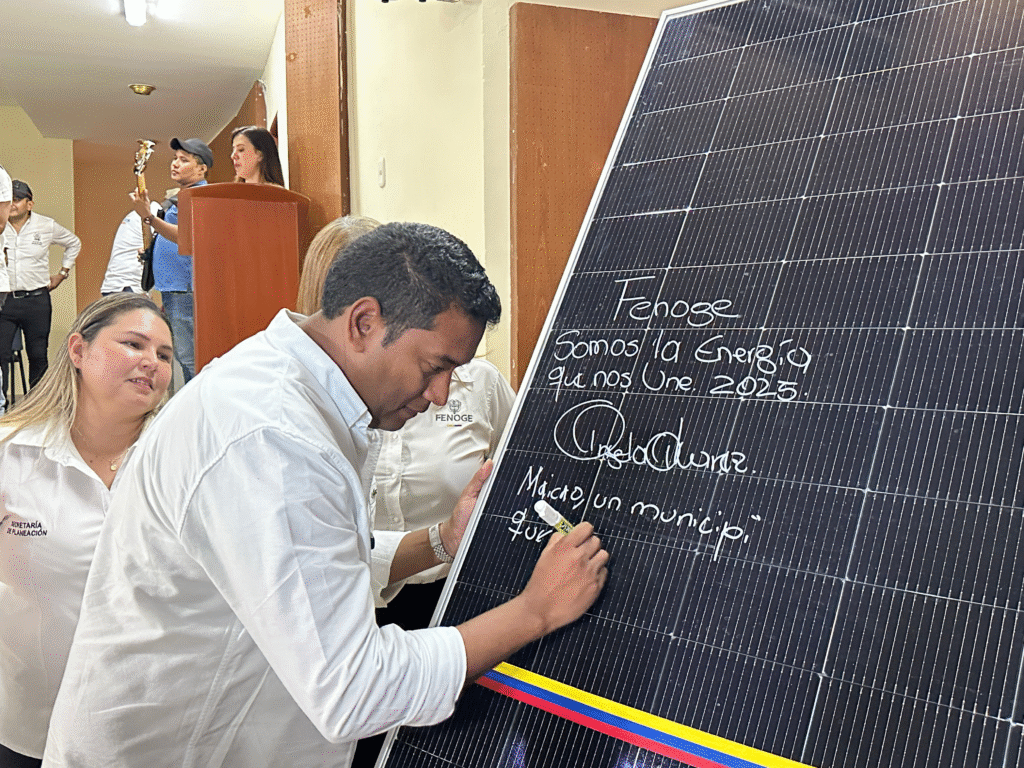 Fenoge
Somos la Energía
que nos Une. 2025.
Angela Alvarez.
Macao, un municipi
que
FENOGE
SECRETARÍA
DE PLANEACIÓN